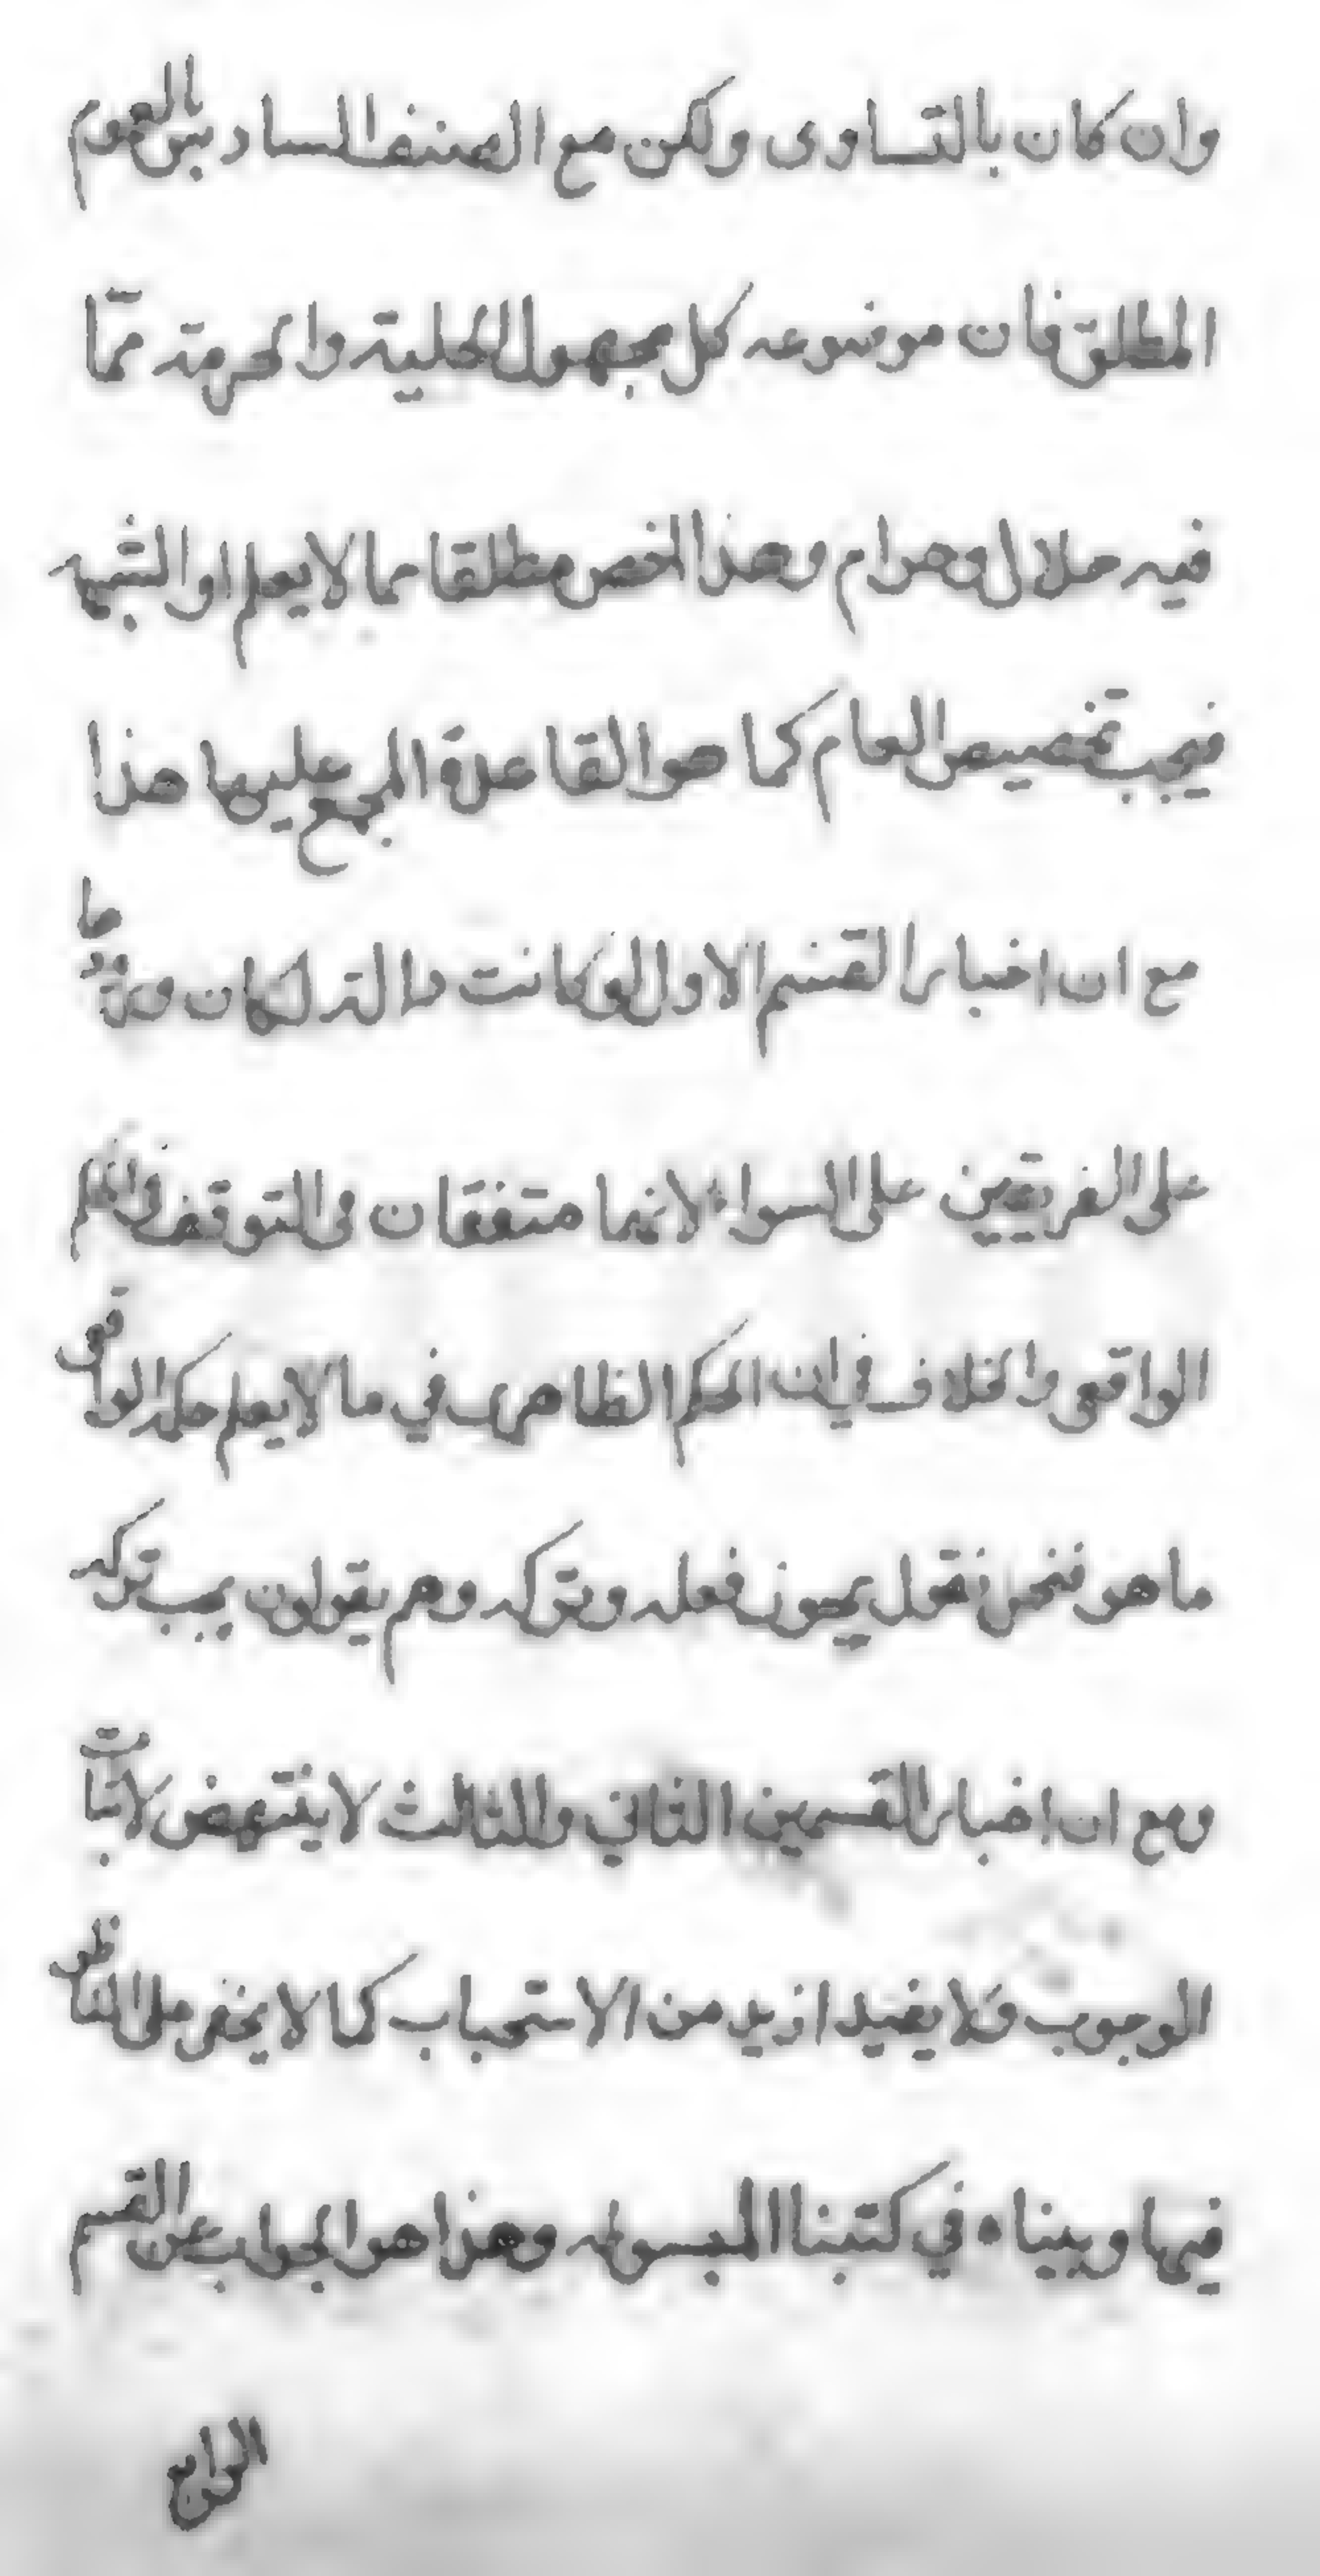 وان كان بالتساوى ولكن مع الصنف السادس بالعموم
المطلق فان موضوعه كل مجهول الحلية والحرمة مما
فيه حلال وحرام وهذا اخص مطلقا مما لا يعلم او الشبهه
فيجب تخصيص العام كما هو القاعدة المجمع عليها هذا
مع ان اخبار القسم الاول لو كانت دالة لكان
على الفريقين على السواء لانهما متفقان فى التوقف فى الحكم
الواقعى والخلاف فى ان الحكم الظاهرى في ما لا يعلم حكمه الواقعى
ما هو فنحن نقول يجوز فعله وتركه وهم يقولون يجب تركه
ومع ان اخبار القسمين الثاني والثالث لا ينتهض لاثبات
الوجوب ولا يفيد ازيد من الاستحباب كما لا يخفى على الناظر
فيها وبيناه في كتبنا المبسوطه وهذا هو الجواب عن القسم
الرابع